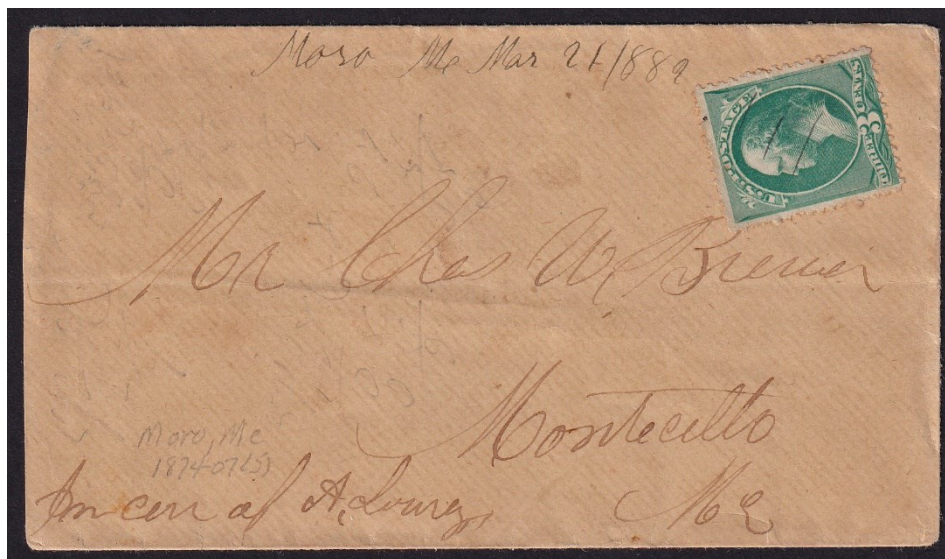 Moro Me Mar 21/1882
U.S. POSTAGE
THREE CENTS
Mr Chas W. Brewer
Montecello
Moro, Me
1874-07(5)
In care of A.
Me